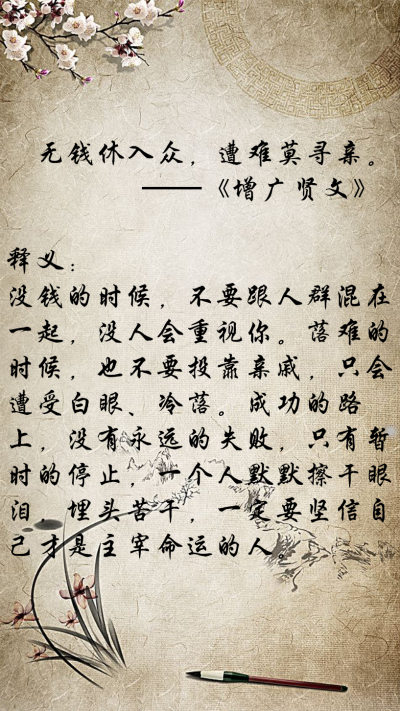 无钱休入众，遭难莫寻亲。
——《增广贤文》
释义：
没钱的时候，不要跟人群混在
一起，没人会重视你。落难的
时候，也不要投靠亲戚，只会
遭受白眼、冷落。成功的路
上，没有永远的失败，只有暂
时的停止，一个人默默擦干眼
泪，埋头苦干，一定要坚信自
己才是主宰命运的人。